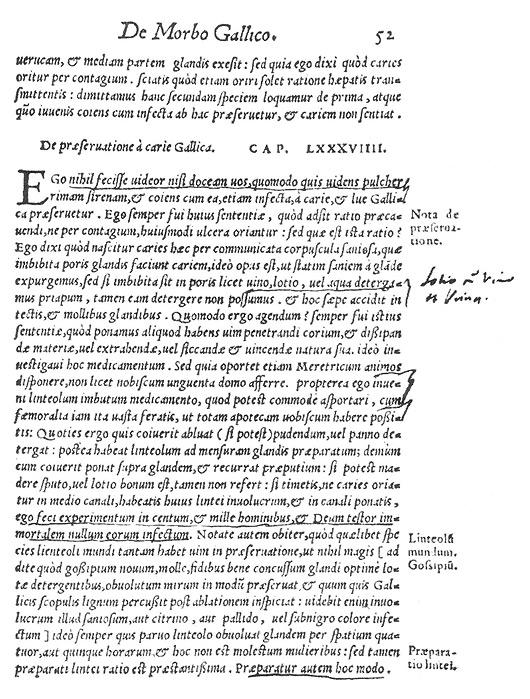 De Morbo Gallico. 52
uerucam, & mediam partem glandis exesit : sed quia ego dixi quòd caries
oritur per contagium. sciatis quòd etiam oriri solet ratione hæpatis tran-
smittentis : dimittamus hanc secundam speciem loquamur de prima, atque
quō iuuenis coiens cum infecta ab hac præseruetur, & cariem non sentiat.
De præseruatione à carie Gallica. CAP. LXXXVIIII.
EGo nihil fecisse uideor nisi doceam uos, quomodo quis uidens pulcher-
rimam sirenam, & coiens cum ea, etiam infecta, à carie, & lue Galli-
ca præseruetur. Ego semper fui huius sententiæ, quòd adsit ratio præca-
uendi, ne per contagium, huiusmodi ulcera oriantur : sed quæ est ista ratio?
Nota de
præserua-
tione.
Ego dixi quòd nascitur caries hæc per communicata corpuscula saniosa, quæ
imbibita poris glandis faciunt cariem, ideò opus est, ut statim saniem à glāde
expurgemus, sed si imbibita sit in poris licet uino, lotio, uel aqua deterga-
mus priapum, tamen eam detergere non possumus. & hoc sæpe accidit in
Lotio
Vino
Vrina.
testis, & mollibus glandibus. Quomodo ergo agendum? semper fui istius
sententiæ, quòd ponamus aliquod habens uim penetrandi corium, & dißipan
dæ materiæ, uel extrahendæ, uel siccandæ & uincendæ natura sua. ideò in-
uestigaui hoc medicamentum. Sed quia oportet etiam Meretricum animos
disponere, non licet nobiscum unguenta domo afferre. propterea ego inue-
ni linteolum imbutum medicamento, quod potest commodè asportari, cum
fæmoralia iam ita uasta feratis, ut totam apotecam uobiscum habere poßi-
tis: Quoties ergo quis coiuerit abluat (si potest) pudendum, uel panno de-
tergat : postea habeat linteolum ad mensuram glandis præparatum; demum
cum coiuerit ponat supra glandem, & recurrat præputium : si potest ma-
dere sputo, uel lotio bonum est, tamen non refert : si timetis, ne caries oria-
tur in medio canali, habeatis huius lintei inuolucrum, & in canali ponatis,
ego feci experimentum in centum, & mille hominibus, & Deum testor im-
mortalem nullum eorum infectum. Notate autem obiter, quòd quælibet spe
cies lienteoli mundi tantam habet uim in præseruatione, ut nihil magis [ ad
dite quòd goßipium nouum, molle, fidibus bene concussum glandi optimè lo-
Linteolū
mundum.
Gossipiū.
tæ detergentibus, obuolutum mirum in modū præseruat, & quum quis Gal-
licis scopulis lignum percußit post ablationem inspiciat : uidebit enim inuo-
lucrum illud saniosum, aut citrino, aut pallido, uel subnigro colore infe-
ctum ] ideò semper quis paruo linteolo obuoluat glandem per spatium qua-
tuor, aut quinque horarum, & hoc non est molestum mulieribus : sed tamen
præparati lintei ratio est præstantißima. Præparatur autem hoc modo.
Præpara-
tio lintei.